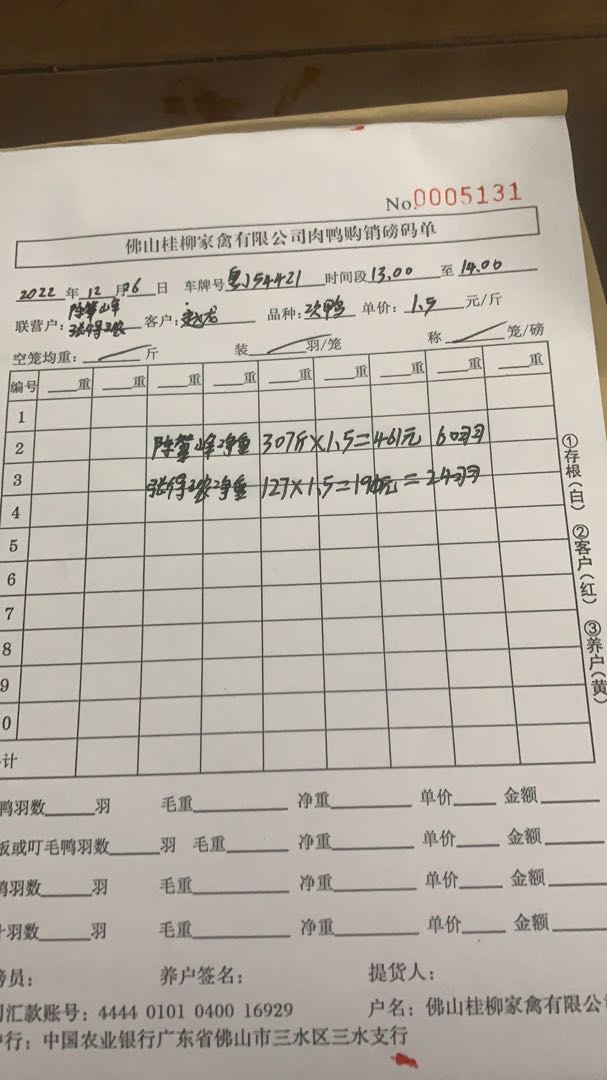 No.0005131
佛山桂柳家禽有限公司肉鸭购销磅码单
2022 年 12 月 06 日 车牌号 粤J54421 时间段 13.00 至 14.00
联营户: 客户: 品种: 次鸭 单价: 1.5 元/斤
空笼均重: 斤 装 羽/笼 称 笼/磅
编号 重 重 重 重 重 重 重 重 重
1
2 峰净重 307斤×1.5=461元 60羽
3 净重 127×1.5=元=24羽
4
5
6
7
8
9
0
计
①存根(白) ②客户(红) ③养户(黄)
鸭羽数 羽 毛重 净重 单价 金额
板或叮毛鸭羽数 羽 毛重 净重 单价 金额
鸭羽数 羽 毛重 净重 单价 金额
计羽数 羽 毛重 净重 单价 金额
磅员: 养户签名: 提货人:
司汇款账号: 4444 0101 0400 16929 户名: 佛山桂柳家禽有限公司
户行: 中国农业银行广东省佛山市三水区三水支行